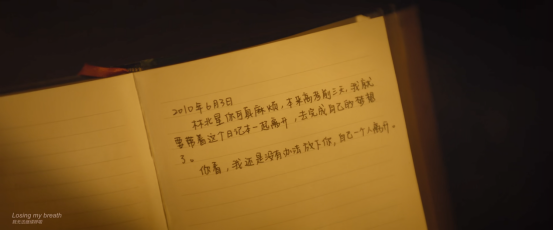 2010年6月3日
林北星你可真麻烦,本来高考前三天,我就
要带着这个日记本一起离开,去完成自己的梦想
了。
你看,我还是没有办法放下你,自己一个人离开。
Losing my breath